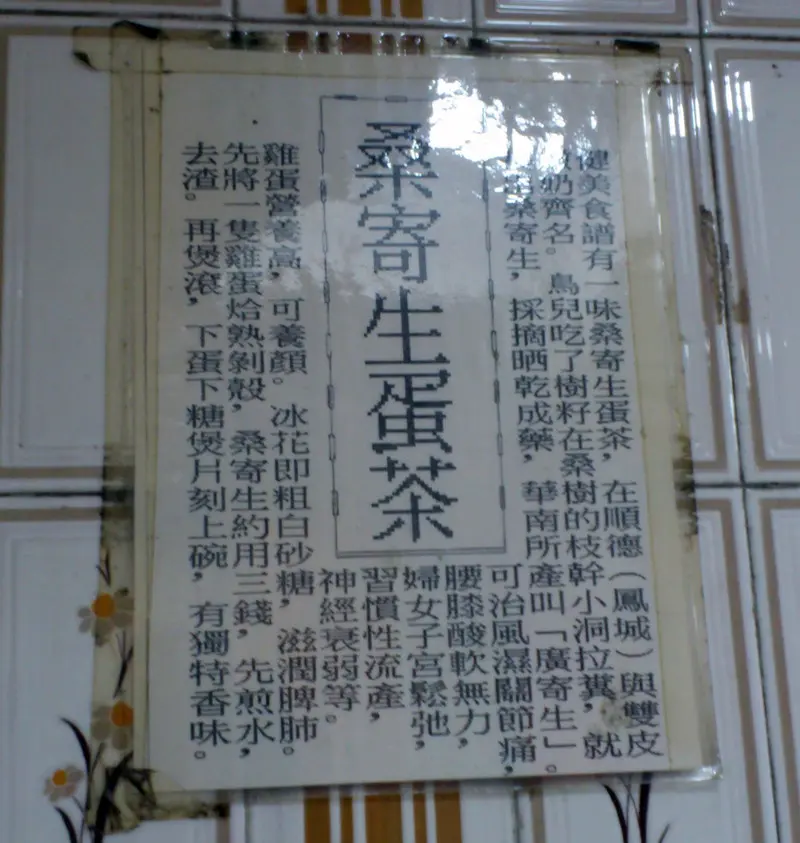 健美食譜有一味桑寄生蛋茶，在順德（鳳城）與雙皮
奶齊名。鳥兒吃了樹籽在桑樹的枝幹小洞拉糞，就
桑寄生，採摘晒乾成藥，華南所產叫「廣寄生」。
可治風濕關節痛，
腰膝酸軟無力，
婦女子宮鬆弛，
習慣性流產，
神經衰弱等。
桑寄生蛋茶
雞蛋營養高，可養顏。冰花即粗白砂糖，滋潤脾肺。
先將一隻雞蛋烚熟剝殼，桑寄生約用三錢，先煎水，
去渣。再煲滾，下蛋下糖煲片刻上碗，有獨特香味。